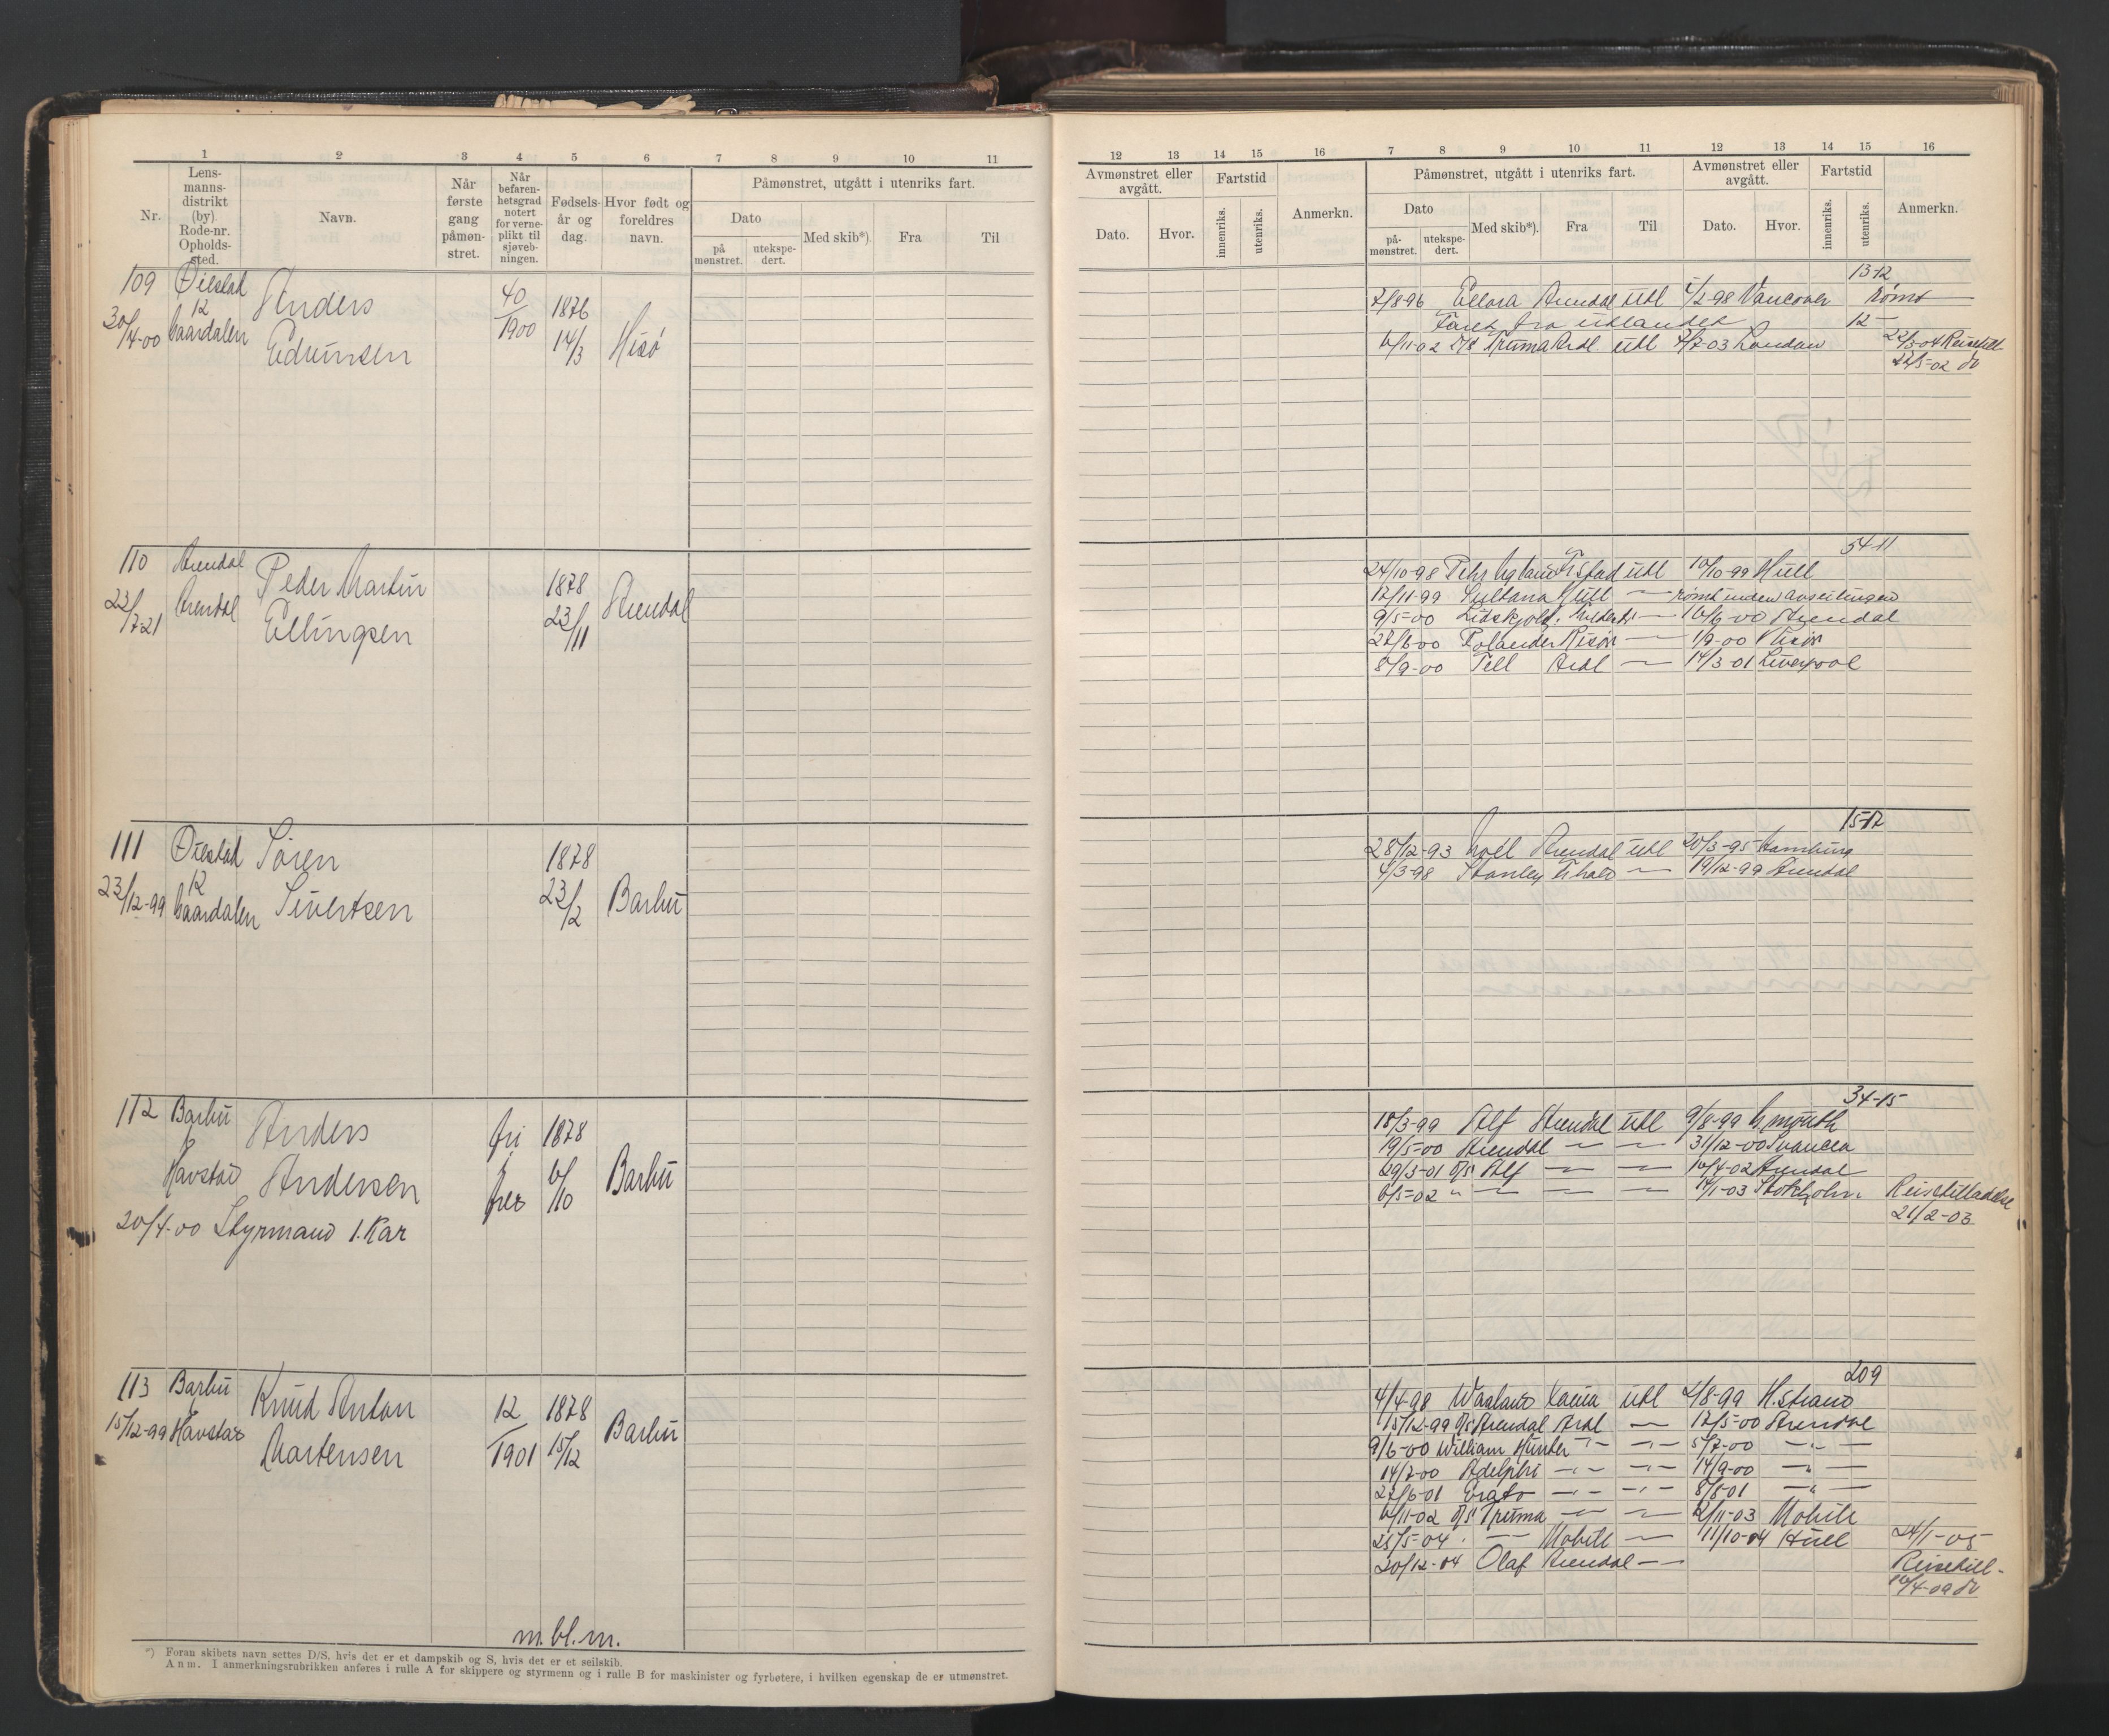 1 2 3 4 5 6 7 8 9 10 11
Nr.
Lens-
manns-
distrikt
(by).
Rode-nr.
Opholds-
sted.
Navn.
Når
første
gang
påmøn-
stret.
Når
befaren-
hetsgrad
notert
for verne-
plikt til
sjøveb-
ningen.
Fødsels-
år og
dag.
Hvor født og
foreldres
navn.
Påmønstret, utgått i utenriks fart.
Dato
på
mønstret.
utekspe-
dert.
Med skib*).
Fra
Til
109 Øiestad
12
30/4-00
Anders
Edvinsen
40/1900
1876
14/3
Hisø
110 Arendal
23/7-21 Arendal
Peder Martin
Ellingsen
1878
23/11
Arendal
111 Øiestad
12
23/12-99
Søren
Sivertsen
1878
23/2
Barbu
112 Barbu
6
Havstad
Anders
Andersen
fri
1878
6/10
Barbu
20/4-00 Styrmand 1. Kar
113 Barbu
15/12-99 Havstad
Knud Anton
Martensen
12/1901
1878
15/12
Barbu
m. bl. m.
*) Foran skibets navn settes D/S, hvis det er et dampskib og S, hvis det er et seilskib.
Anm. I anmerkningsrubrikken anføres i rulle A for skippere og styrmenn og i rulle B for maskinister og fyrbøtere, i hvilken egenskap de er utmønstret.
12 13 14 15 16 7 8 9 10 11 12 13 14 15 16
Avmønstret eller
avgått.
Dato.
Hvor.
Fartstid
innenriks.
utenriks.
Anmerkn.
Påmønstret, utgått i utenriks fart.
Dato
på-
mønstret.
utekspe-
dert.
Med skib*).
Fra
Til
Avmønstret eller
avgått.
Dato.
Hvor.
Fartstid
innenriks.
utenriks.
Anmerkn.
13-12
7/8-96 Ellora Arendal utl 4/2-98 Vancover rømt
Faret fra utlandet 12-
6/11-02 D/S Truma Ardl. utl 2/7-03 London 22/3-04 Reisetill.
22/5-02 do
54-11
24/10-98 Pehr Ugland Fistad utl 10/10-99 Hull
17/11-99 Sultana Hull — rømt inden avseilingen
9/5-00 — 16/6-00 Arendal
27/6-00 Rolander Risør — 1/9-00 Risør
8/9-00 Tell Ardl — 14/3-01 Liverpool
15-17
28/12-93 Noel Arendal utl 20/3-95 Hamburg
4/3-98 Stanley — 19/12-99 Arendal
34-15
18/3-99 Alf Arendal utl 9/8-99
19/5-00 Arendal — — 31/12-00 Svancea
29/3-01 D/S Alf — — 16/4-02 Arendal
6/5-02 " — — — 14/1-03 Stokholm. Reisetilladelse
21/2-03
209
4/4-98 utl 2/8-99 H.strand
15/12-99 D/S Arendal Ardl — 17/5-00 Arendal
9/6-00 William Hunter -"- -"- 5/7-00 -"-
14/7-00 Adelphi -"- -"- 14/9-00 -"-
27/6-01 Erato -"- -"- 8/8-01 -"-
6/11-02 D/S Truma — — 12/11-03 Mobile
25/5-04 — Mobile — 11/10-04 Hull 24/1-05
20/12-04 Olaf Arendal — Reisetill-
16/4-09 do